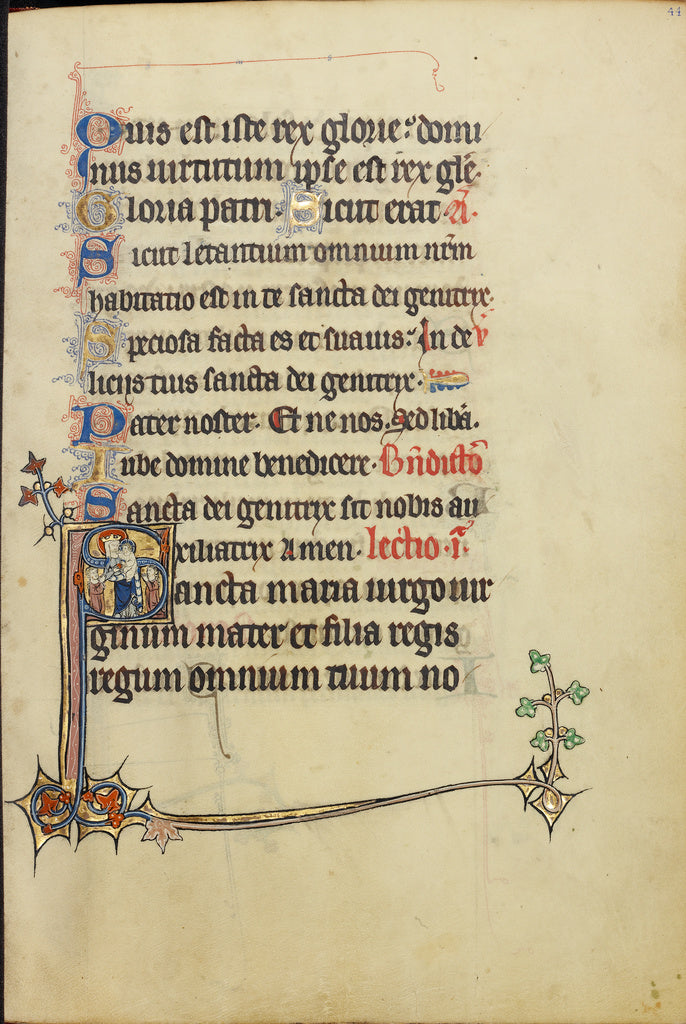 44
Quis est iste rex glorie: domi
nus uirtutum ipse est rex gl̄e.
Gloria patri. Sicut erat a̅.
Sicut letantium omnium nr̄m
habitatio est in te sancta dei genitrix.
Speciosa facta es et suauis: In de v̄
liciis tuis sancta dei genitrix.
Pater noster. Et ne nos. Sed libā.
Iube domine benedicere. Bn̄dictō
Sancta dei genitrix sit nobis au
xiliatrix Amen. lectio .i.ͣ
Sancta maria uirgo uir
ginum mater et filia regis
regum omnium tuum no